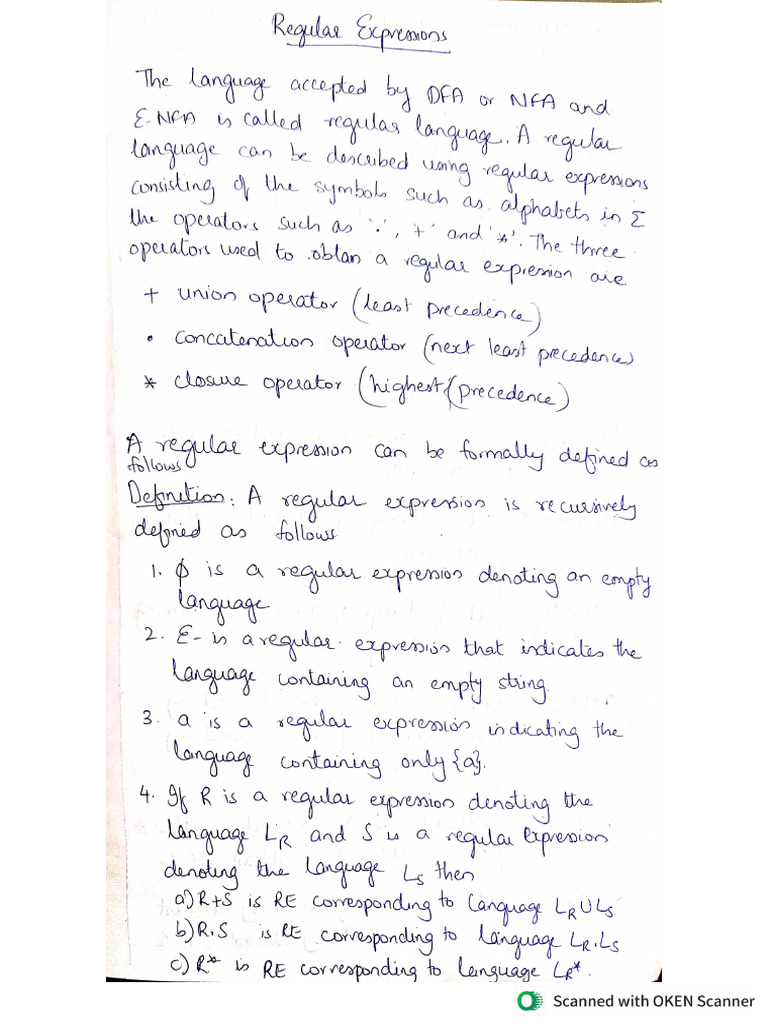 Regular Expressions
The language accepted by DFA or NFA and
ε-NFA is called regular language. A regular
language can be described using regular expressions
consisting of the symbols such as alphabets in Σ
the operators such as '.', '+' and '*'. The three
operators used to obtan a regular expression are
+ union operator (least precedence)
• concatenation operator (next least precedence)
* closure operator (highest precedence)
A regular expression can be formally defined as
follows
Definition: A regular expression is recursively
defined as follows
1. φ is a regular expression denoting an empty
language
2. ε- is a regular expression that indicates the
language containing an empty string.
3. a is a regular expression indicating the
language containing only {a}.
4. If R is a regular expression denoting the
language L_R and S is a regular expression
denoting the language L_S then
a) R+S is RE corresponding to language L_R ∪ L_S
b) R.S is RE corresponding to language L_R.L_S
c) R* is RE corresponding to language L_R*.
Scanned with OKEN Scanner